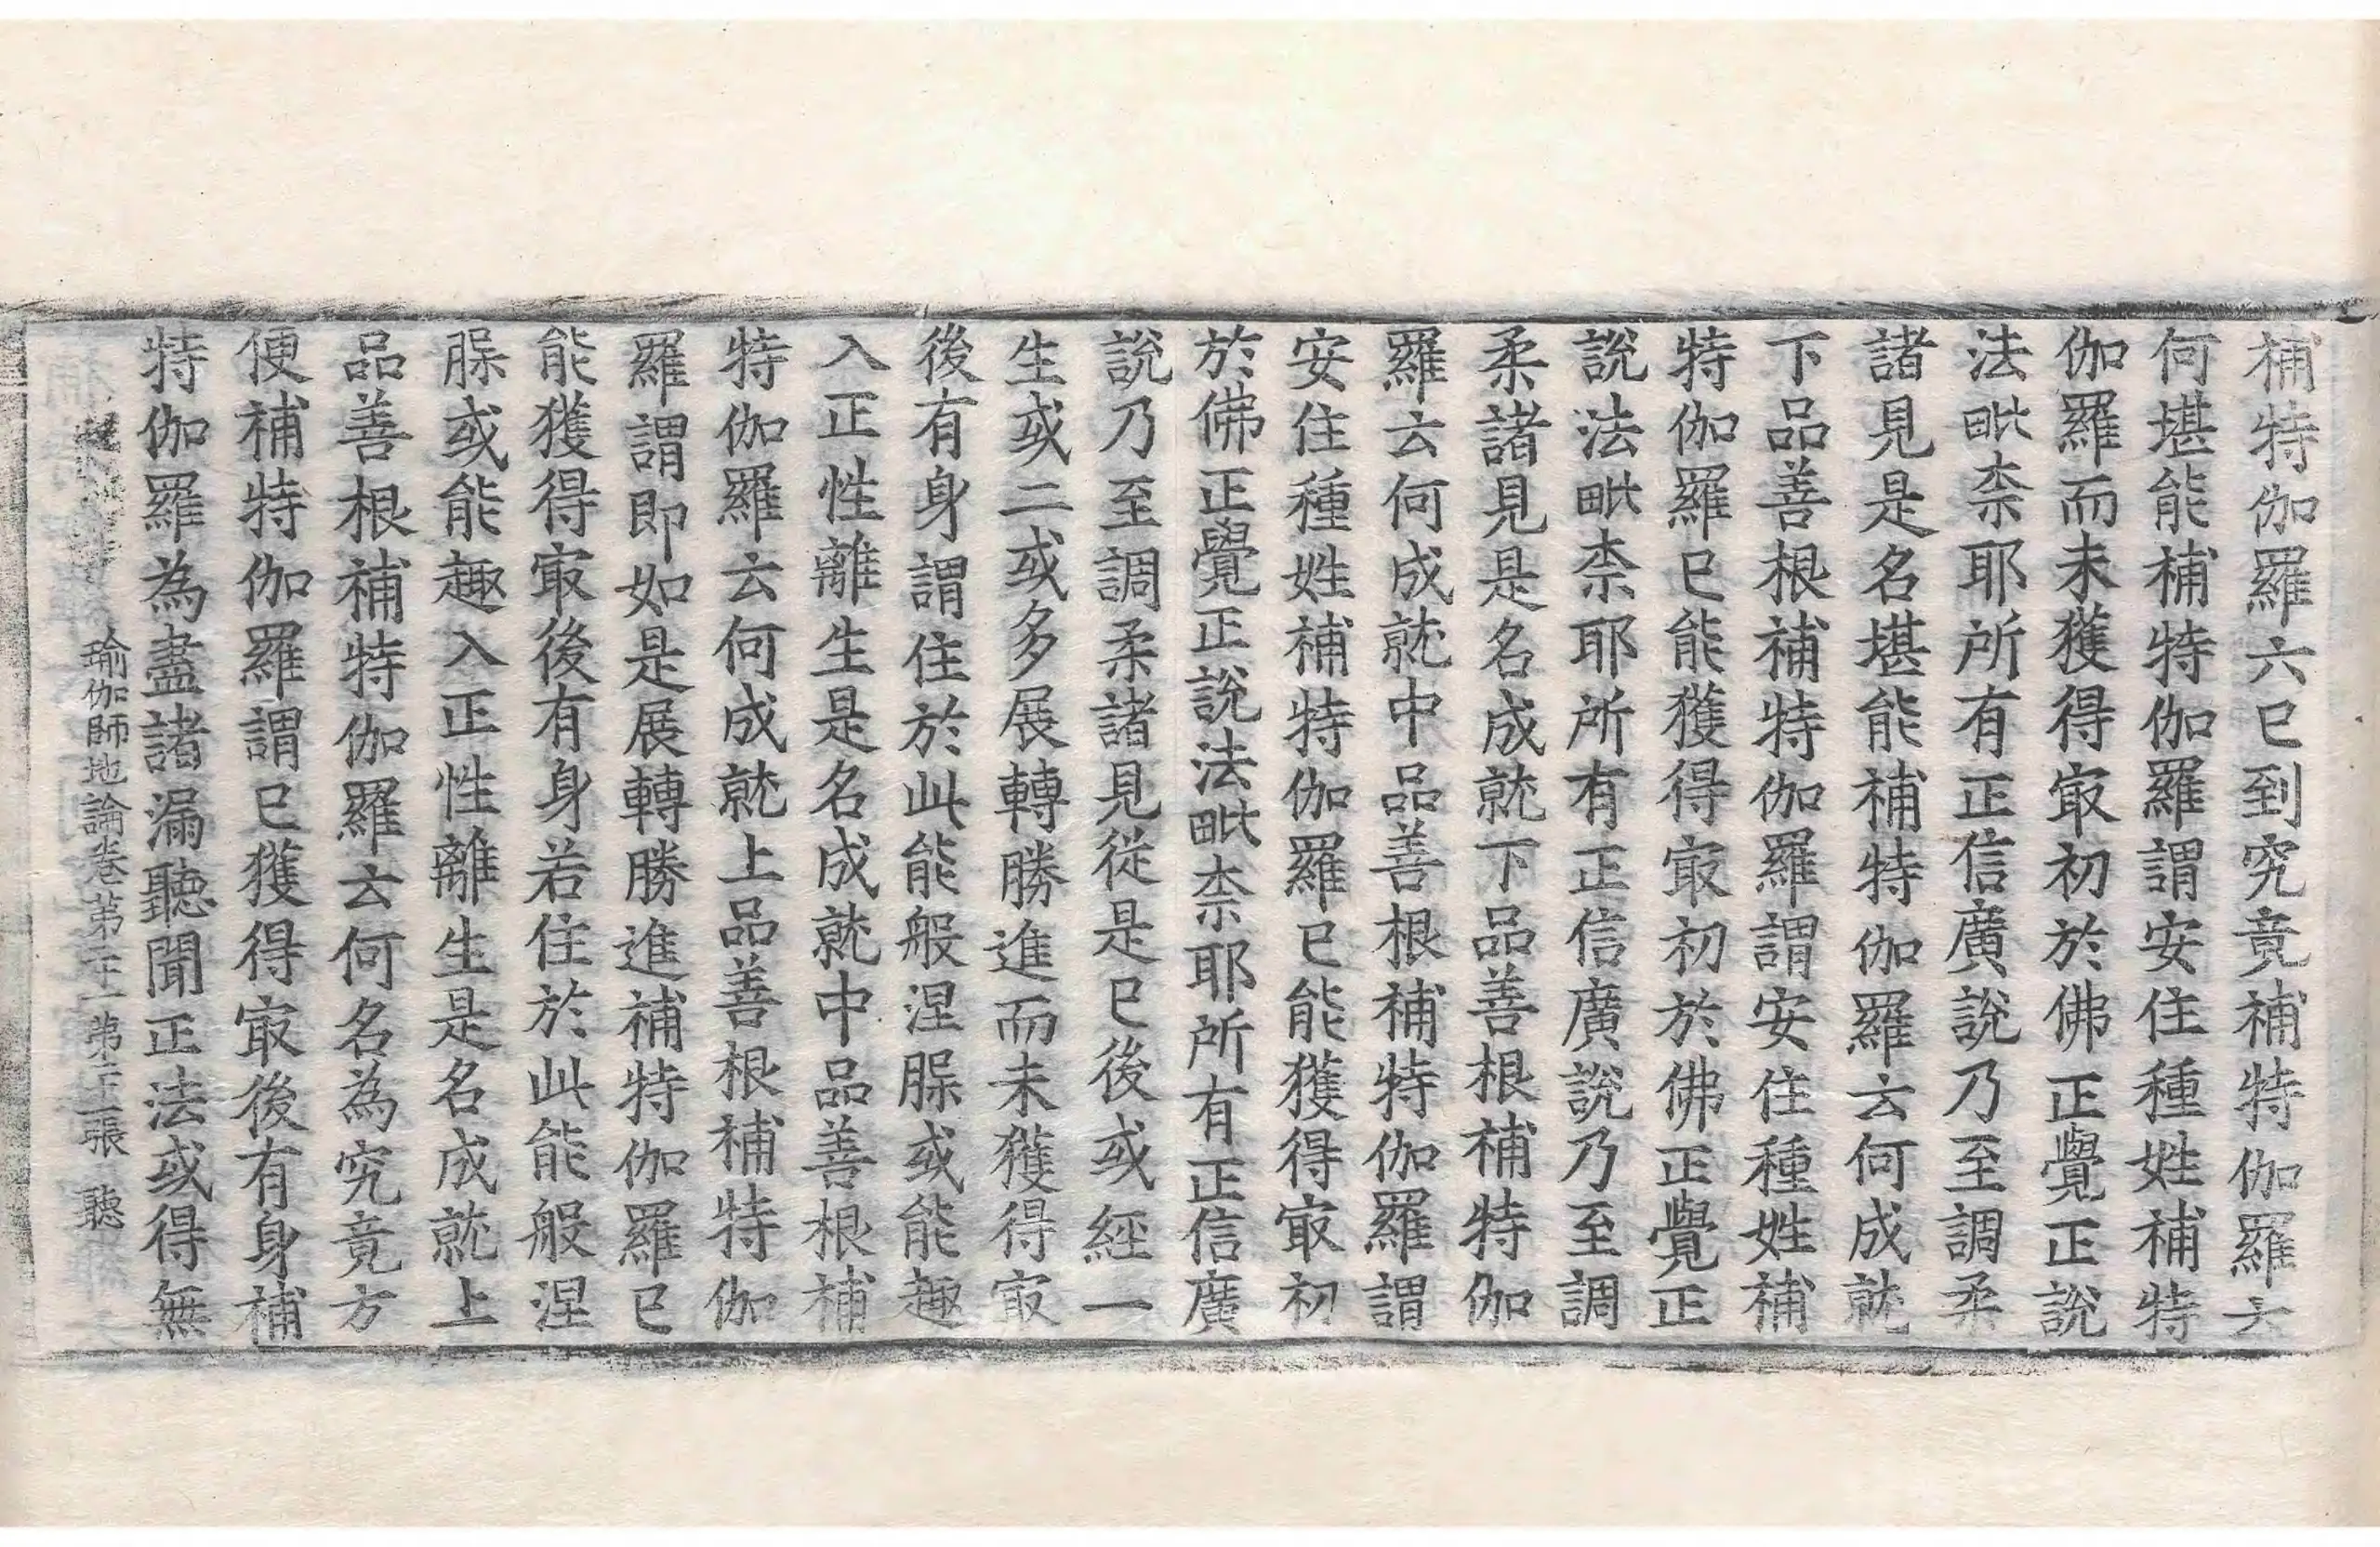 補特伽羅六已到究竟補特伽羅六
何堪能補特伽羅謂安住種姓補特
伽羅而未獲得㝡初於佛正覺正說
法毗柰耶所有正信廣說乃至調柔
諸見是名堪能補特伽羅云何成就
下品善根補特伽羅謂安住種姓補
特伽羅已能獲得㝡初於佛正覺正
說法毗柰耶所有正信廣說乃至調
柔諸見是名成就下品善根補特伽
羅云何成就中品善根補特伽羅謂
安住種姓補特伽羅已能獲得㝡初
於佛正覺正說法毗柰耶所有正信廣
說乃至調柔諸見從是已後或經一
生或二或多展轉勝進而未獲得㝡
後有身謂住於此能般涅槃或能趣
入正性離生是名成就中品善根補
特伽羅云何成就上品善根補特伽
羅謂即如是展轉勝進補特伽羅已
能獲得㝡後有身若住於此能般涅
槃或能趣入正性離生是名成就上
品善根補特伽羅云何名為究竟方
便補特伽羅謂已獲得㝡後有身補
特伽羅為盡諸漏聽聞正法或得無
瑜伽師地論卷第二十一 第二十一張 聽